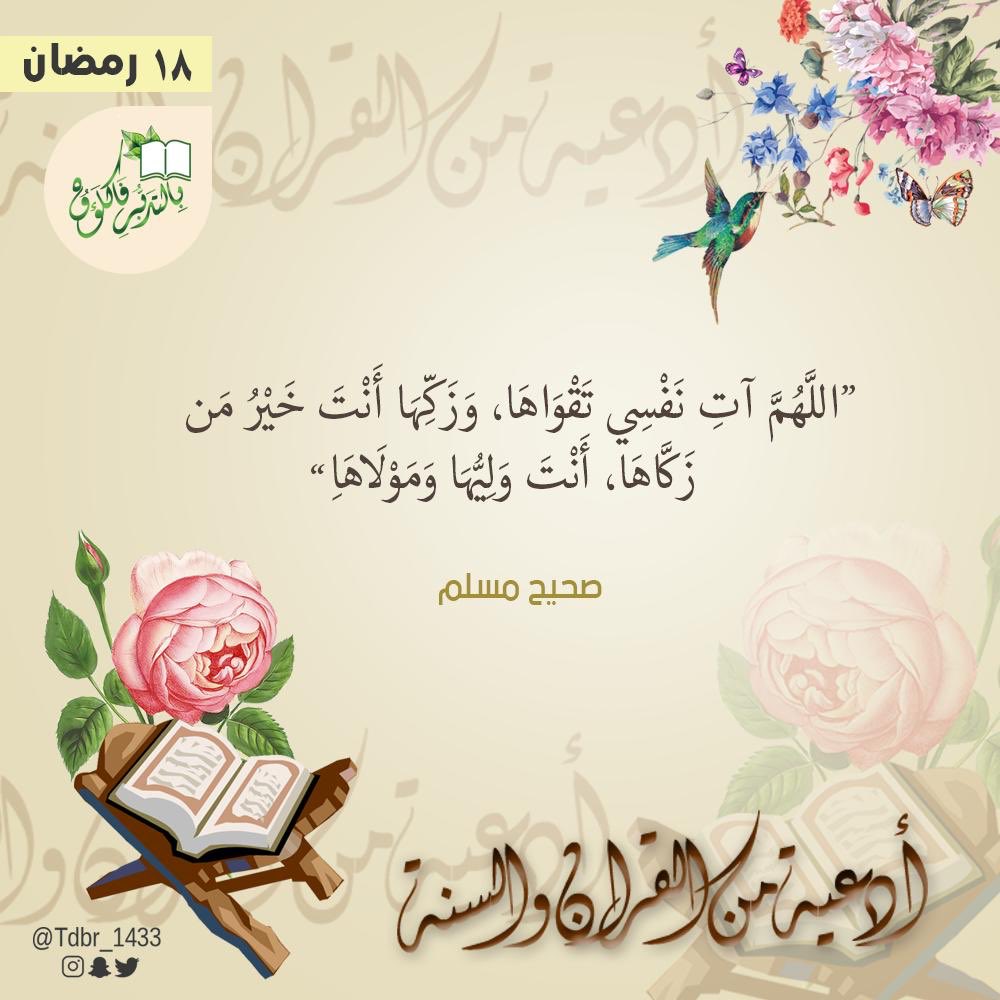 ١٨ رمضان
بالتدبر فاكوون
”اللَّهُمَّ آتِ نَفْسِي تَقْوَاهَا، وَزَكِّهَا أَنْتَ خَيْرُ مَن
زَكَّاهَا، أَنْتَ وَلِيُّهَا وَمَوْلَاهَاِ“
صحيح مسلم
أدعية من القرآن والسنة
@Tdbr_1433